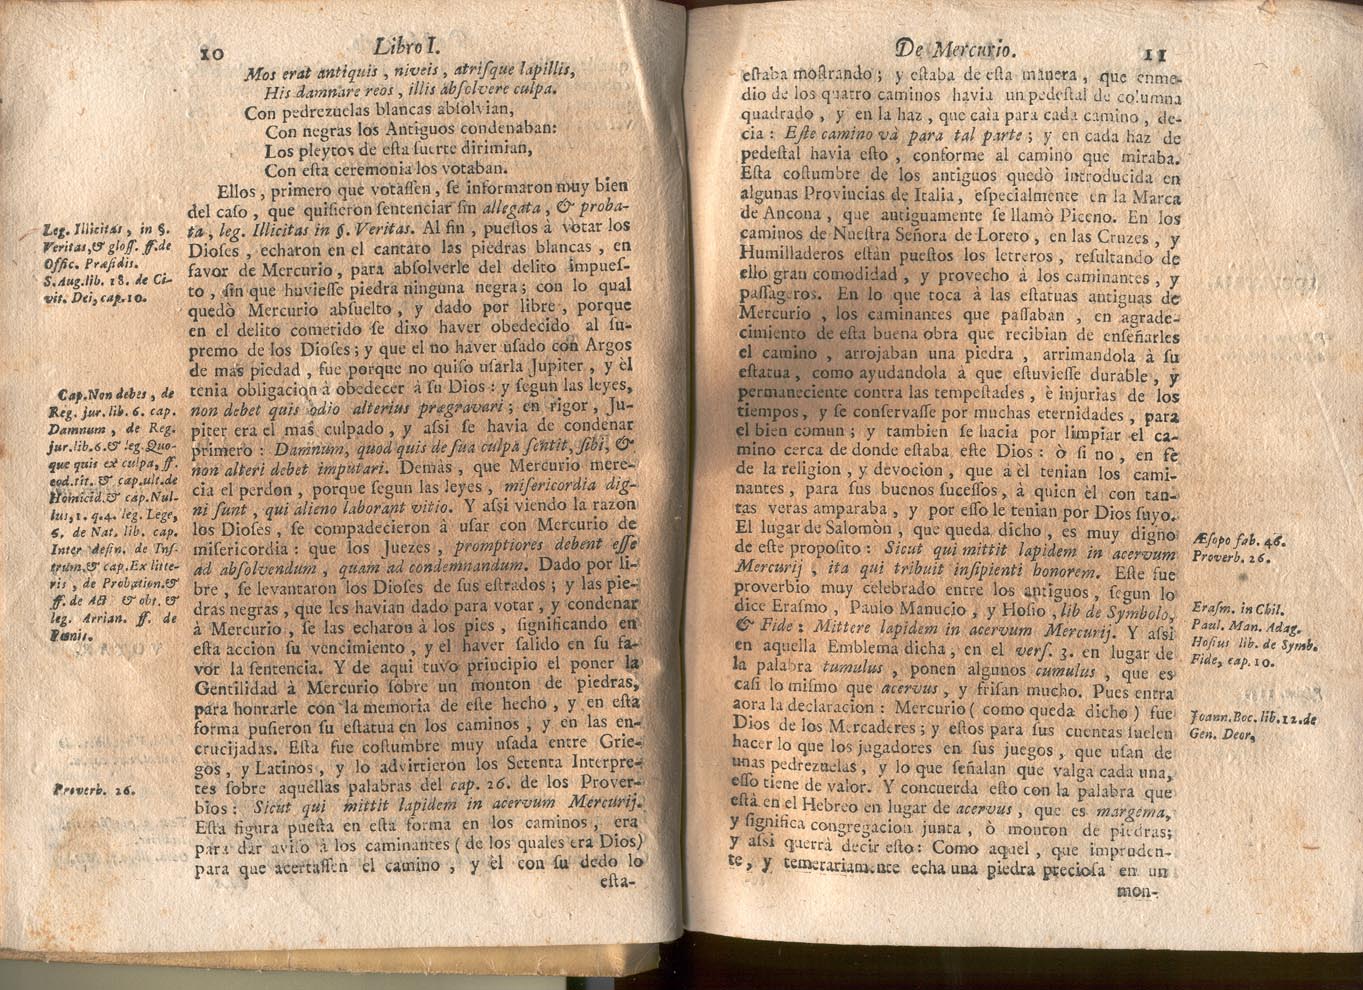 10 Libro I.
Mos erat antiquis, niveis, atrisque lapillis,
His damnare reos, illis absolvere culpa.
Con pedrezuelas blancas absolvian,
Con negras los Antiguos condenaban:
Los pleytos de esta suerte dirimian,
Con esta ceremonia los votaban.
Ellos, primero que votassen, se informaron muy bien
del caso, que quisieron sentenciar sin allegata, & proba-
ta, leg. Illicitas in §. Veritas. Al fin, puestos à votar los
Dioses, echaron en el cantaro las piedras blancas, en
favor de Mercurio, para absolverle del delito impues-
to, sin que huviesse piedra ninguna negra; con lo qual
quedò Mercurio absuelto, y dado por libre, porque
en el delito cometido se dixo haver obedecido al su-
premo de los Dioses; y que el no haver usado con Argos
de mas piedad, fue porque no quiso usarla Jupiter, y èl
tenia obligacion à obedecer à su Dios: y segun las leyes,
non debet quis odio alterius prægravari; en rigor, Ju-
piter era el mas culpado, y assi se havia de condenar
primero: Damnum, quod quis de sua culpa sentit, sibi, &
non alteri debet imputari. Demàs, que Mercurio mere-
cia el perdon, porque segun las leyes, misericordia dig-
ni sunt, qui alieno laborant vitio. Y assi viendo la razon
los Dioses, se compadecieron à usar con Mercurio de
misericordia: que los Juezes, promptiores debent esse
ad absolvendum, quam ad condemnandum. Dado por li-
bre, se levantaron los Dioses de sus estrados; y las pie-
dras negras, que les havian dado para votar, y condenar
à Mercurio, se las echaron à los pies, significando en
esta accion su vencimiento, y el haver salido en su fa-
vor la sentencia. Y de aqui tuvo principio el poner la
Gentilidad à Mercurio sobre un monton de piedras,
para honrarle con la memoria de este hecho, y en esta
forma pusieron su estatua en los caminos, y en las en-
crucijadas. Esta fue costumbre muy usada entre Grie-
gos, y Latinos, y lo advirtieron los Setenta Interpre-
tes sobre aquellas palabras del cap. 26. de los Prover-
bios: Sicut qui mittit lapidem in acervum Mercurij.
Esta figura puesta en esta forma en los caminos, era
para dar aviso à los caminantes (de los quales era Dios)
para que acertassen el camino, y èl con su dedo lo
esta-
Leg. Illicitas, in §.
Veritas, & gloss. ff. de
Offic. Præsidis.
S. Aug. lib. 18. de Ci-
vit. Dei, cap. 10.
Cap. Non debes, de
Reg. jur. lib. 6. cap.
Damnum, de Reg.
jur. lib. 6. & leg. Quo-
que quis ex culpa, ff.
eod. tit. & cap. ult. de
Homicid. & cap. Nul-
lus, 1. q. 4. leg. Lege,
6. de Nat. lib. cap.
Inter desin. de Inf-
trum. & cap. Ex litte-
ris, de Probation. &
ff. de Act & obt. &
leg. Arrian. ff. de
Pœnis.
Proverb. 26.
De Mercurio. 11
estaba mostrando; y estaba de esta manera, que enme-
dio de los quatro caminos havia un pedestal de columna
quadrado, y en la haz, que caia para cada camino, de-
cia: Este camino và para tal parte; y en cada haz de
pedestal havia esto, conforme al camino que miraba.
Esta costumbre de los antiguos quedò introducida en
algunas Provincias de Italia, especialmente en la Marca
de Ancona, que antiguamente se llamò Piceno. En los
caminos de Nuestra Señora de Loreto, en las Cruzes, y
Humilladeros estàn puestos los letreros, resultando de
ello gran comodidad, y provecho à los caminantes, y
passageros. En lo que toca à las estatuas antiguas de
Mercurio, los caminantes que passaban, en agrade-
cimiento de esta buena obra que recibian de enseñarles
el camino, arrojaban una piedra, arrimandola à su
estatua, como ayudandola à que estuviesse durable, y
permaneciente contra las tempestades, è injurias de los
tiempos, y se conservasse por muchas eternidades, para
el bien comun; y tambien se hacia por limpiar el ca-
mino cerca de donde estaba este Dios: ò si no, en fè
de la religion, y devocion, que à èl tenian los cami-
nantes, para sus buenos sucessos, à quien èl con tan-
tas veras amparaba, y por esso le tenian por Dios suyo.
El lugar de Salomòn, que queda dicho, es muy digno
de este proposito: Sicut qui mittit lapidem in acervum
Mercurij, ita qui tribuit insipienti honorem. Este fue
proverbio muy celebrado entre los antiguos, segun lo
dice Erasmo, Paulo Manucio, y Hosio, lib de Symbolo,
& Fide: Mittere lapidem in acervum Mercurij. Y assi
en aquella Emblema dicha, en el vers. 3. en lugar de
la palabra tumulus, ponen algunos cumulus, que es
casi lo mismo que acervus, y frisan mucho. Pues entra
aora la declaracion: Mercurio (como queda dicho) fue
Dios de los Mercaderes; y estos para sus cuentas suelen
hacer lo que los jugadores en sus juegos, que usan de
unas pedrezuelas, y lo que señalan que valga cada una,
esso tiene de valor. Y concuerda esto con la palabra que
està en el Hebreo en lugar de acervus, que es margema,
y significa congregacion junta, ò monton de piedras;
y assi querrà decir esto: Como aquel, que impruden-
te, y temerariamente echa una piedra preciosa en un
mon-
Æsopo fab. 46.
Proverb. 26.
Erasm. in Chil.
Paul. Man. Adag.
Hosius lib. de Symb.
Fide, cap. 10.
Joann. Boc. lib. 12. de
Gen. Deor,